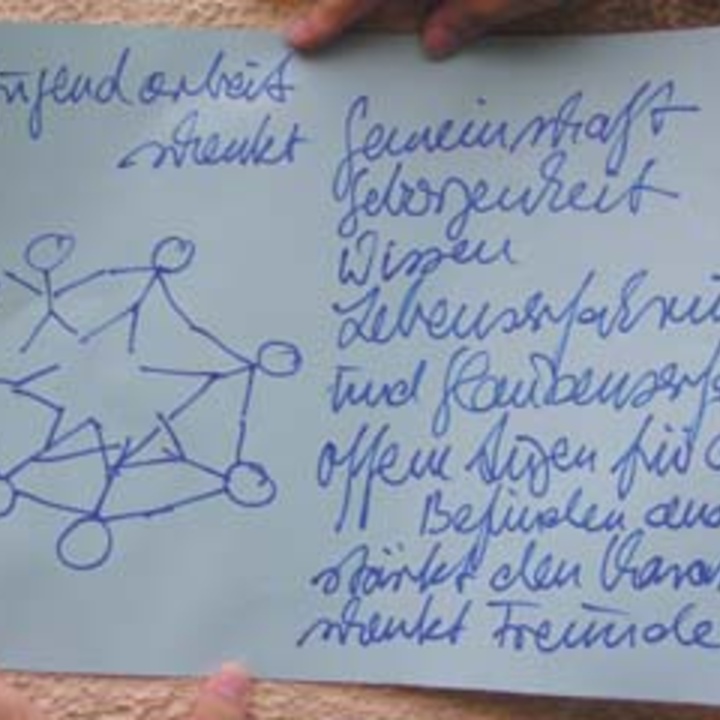 ugendarbeit
schenkt
Gemeinschaft
Geborgenheit
Wissen
Lebenserfahru
und Glaubenserf
offene Augen für d
Befinden and
stärkt den Charak
schenkt Freunde